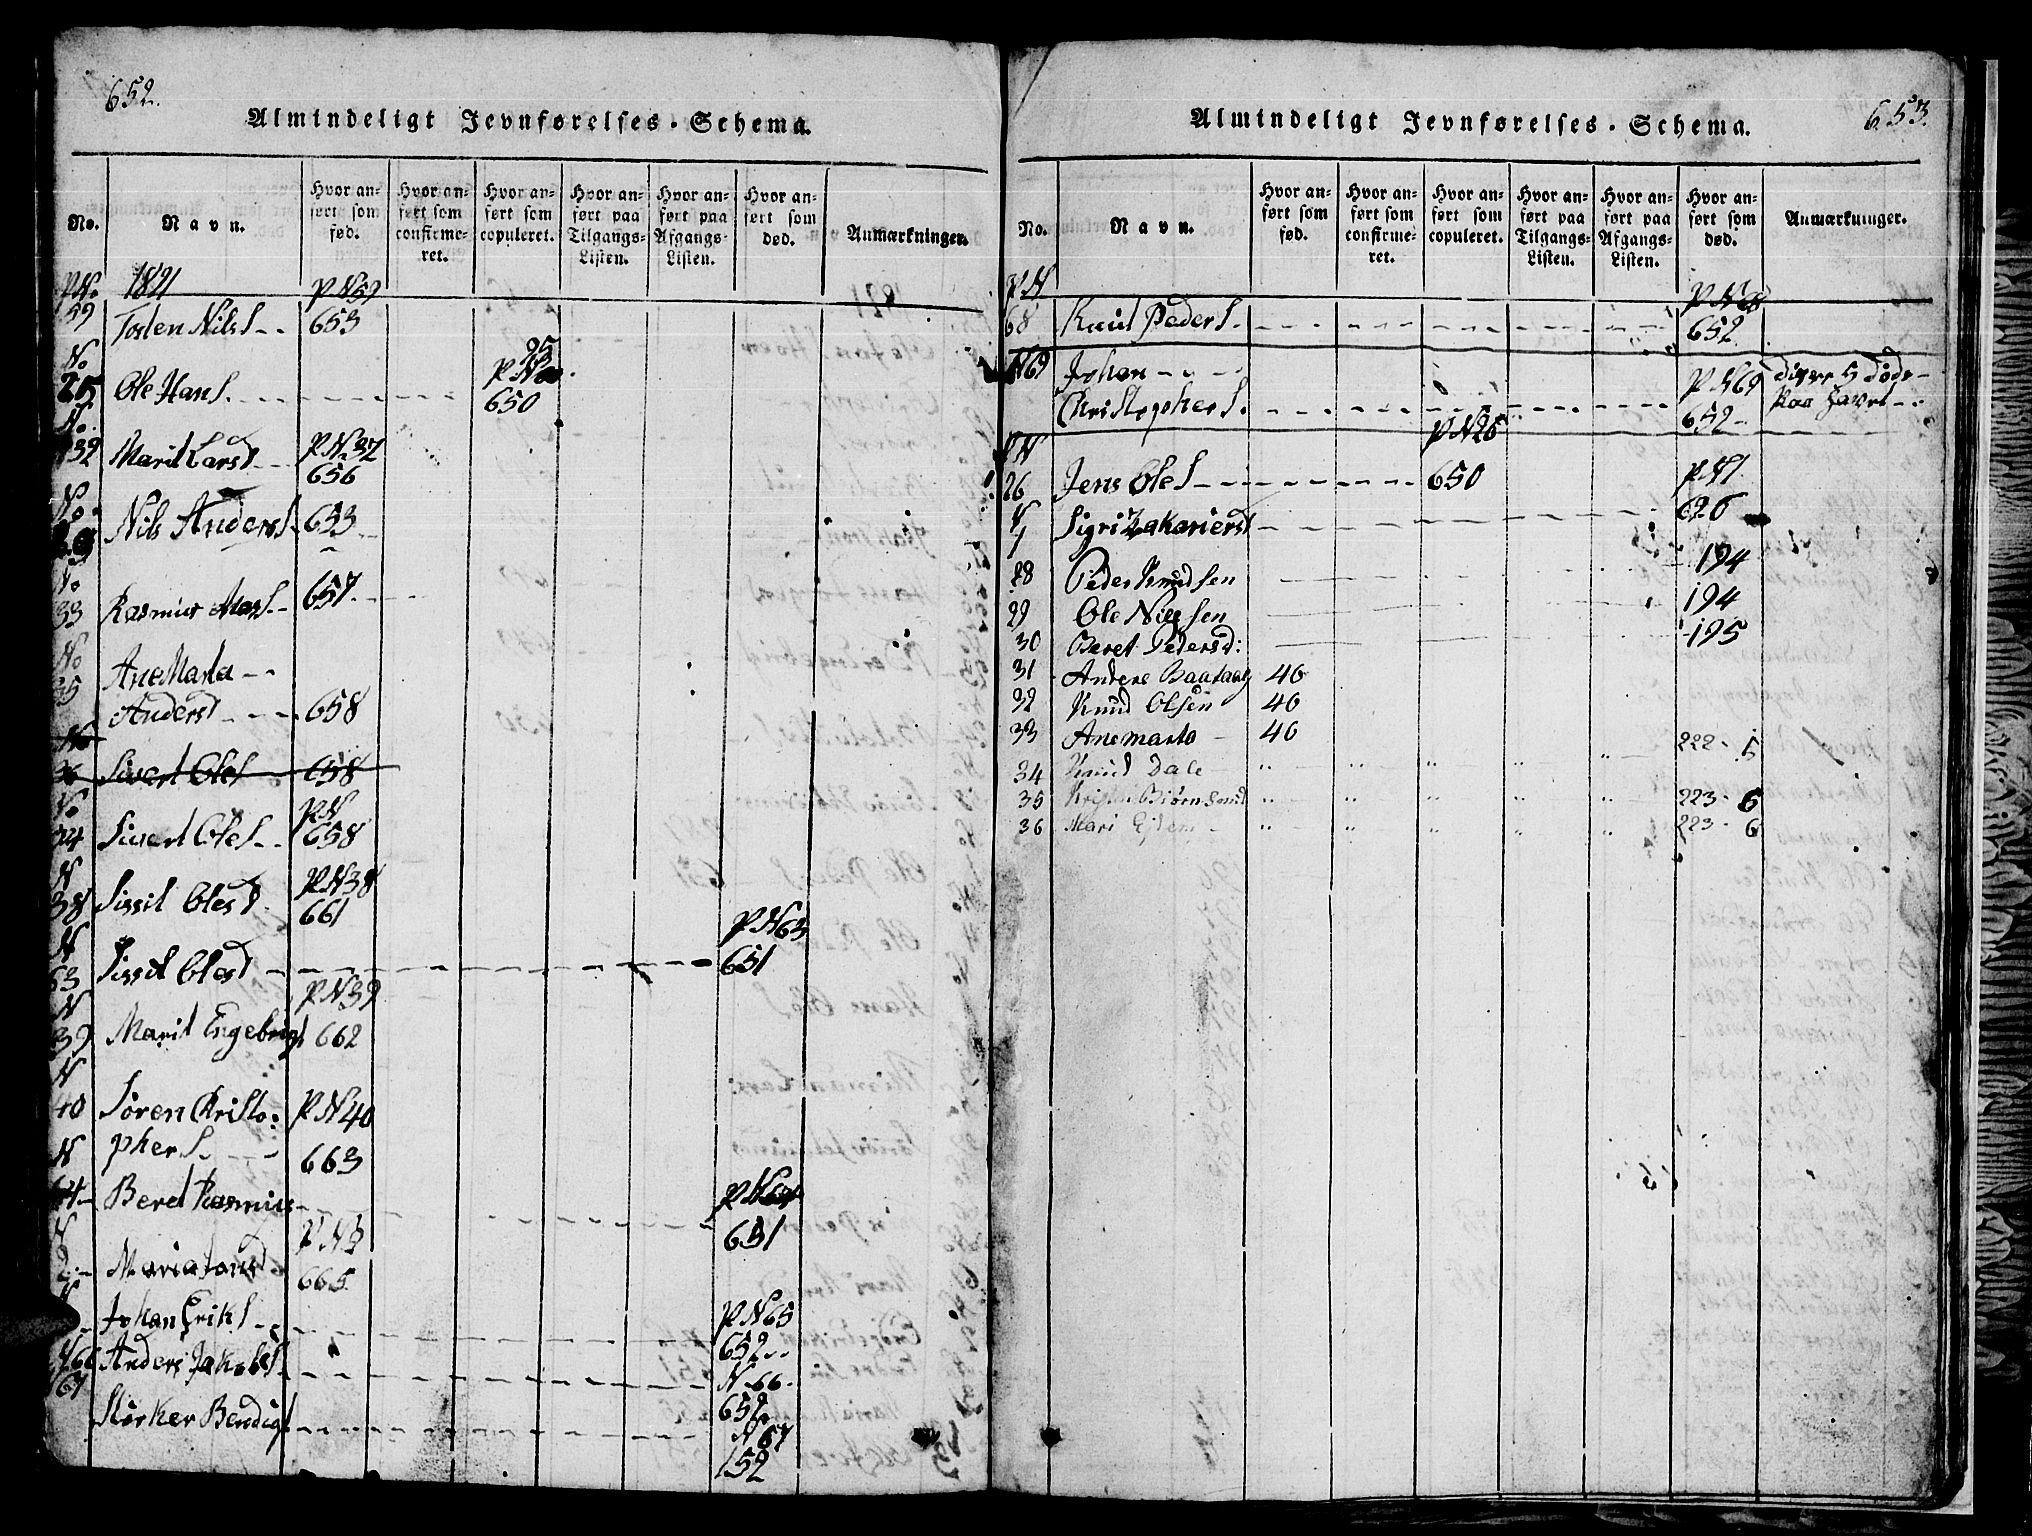 652.
Almindeligt Jevnførelses-Schema.
No.
Navn.
Hvor anført som fød.
Hvor anført som confirmeret.
Hvor anført som copuleret.
Hvor anført paa Tilgangs-Listen.
Hvor anført paa Afgangs-Listen.
Hvor anført som død.
Anmærkninger.
1821
59 Tosten NilsS 653
No 25
Ole HansS. 650
No. 32 Marit Larsd P N. 37
656
No. Nils AndersS 653
No 33 Rasmus 657
No 35 Ane Marta
Andersd 658
No 36 Sivert OleS 658
No 34 Sivert OleS P N 658
N 38 Sissil Olesd P N 38
661
N 63 Sissil Olesd P N 63
651
N 39 Marit Engebrigt P N 39
662
N 40 Søren Kristo: P N 40
pherS. 663
N 64 Beret Rasmus P N 64
651
N Maria P N 3
665
Johan ErikS P N 65
652
N 66 Anders JakobS N 66
652
67 Størker Bendigt N 67
152
653.
Almindeligt Jevnførelses-Schema.
No.
Navn.
Hvor anført som fød.
Hvor anført som confirmeret.
Hvor anført som copuleret.
Hvor anført paa Tilgangs-Listen.
Hvor anført paa Afgangs-Listen.
Hvor anført som død.
Anmærkninger.
P N 68 Knud PederS. P N 68
652
N 69 Johan P N 69
ChristopherS. 652 paa
P N 26 Jens OleS P N 26
650
N 1 Sigri Zakariersd P N 1
626
28 Peder Knudsen 194
29 Ole Nilssen 194
30 Beret Pedersd: 195
31 Anders 46
32 Knud Olsen 46
33 Anemarta 46
34 Knud Dale " " " " " 222 - 5
35 " " " " " 223 - 6
36 Mari " " " " " 223 - 6